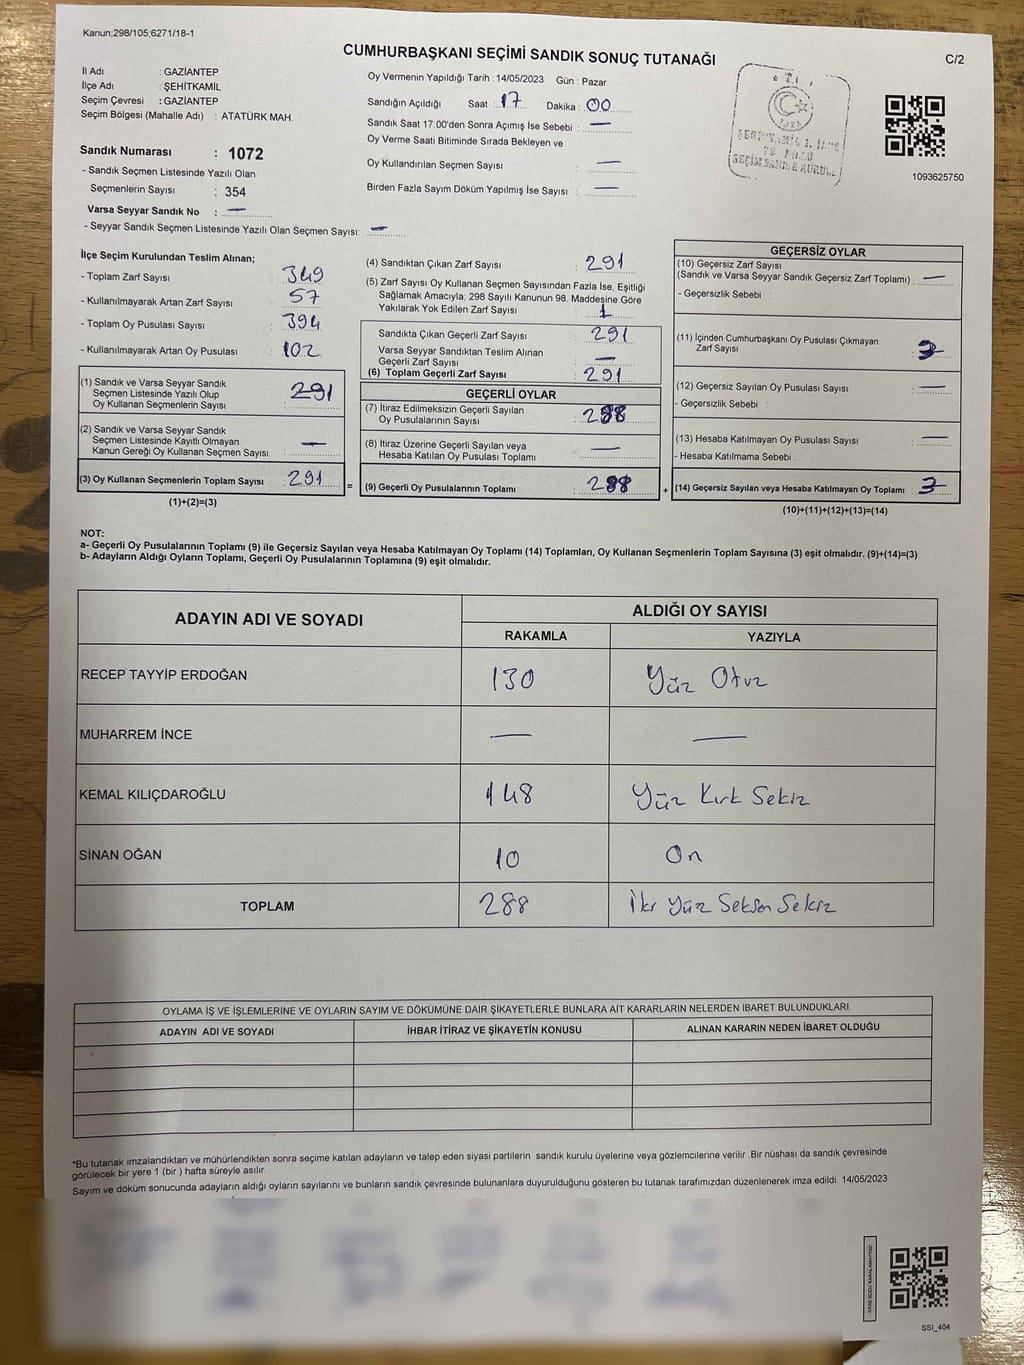 Kanun;298/105;6271/18-1
CUMHURBAŞKANI SEÇİMİ SANDIK SONUÇ TUTANAĞI
C/2
İl Adı : GAZİANTEP
İlçe Adı : ŞEHİTKAMİL
Seçim Çevresi : GAZİANTEP
Seçim Bölgesi (Mahalle Adı) : ATATÜRK MAH.
Sandık Numarası : 1072
- Sandık Seçmen Listesinde Yazılı Olan
Seçmenlerin Sayısı : 354
Varsa Seyyar Sandık No : —
- Seyyar Sandık Seçmen Listesinde Yazılı Olan Seçmen Sayısı: —
Oy Vermenin Yapıldığı Tarih : 14/05/2023 Gün : Pazar
Sandığın Açıldığı Saat : 17 Dakika : 00
Sandık Saat 17:00'den Sonra Açımış İse Sebebi : —
Oy Verme Saati Bitiminde Sırada Bekleyen ve
Oy Kullandırılan Seçmen Sayısı : —
Birden Fazla Sayım Döküm Yapılmış İse Sayısı : —
T.C.
SEÇİM SANDIK KURULU
1093625750
İlçe Seçim Kurulundan Teslim Alınan;
- Toplam Zarf Sayısı : 349
- Kullanılmayarak Artan Zarf Sayısı : 57
- Toplam Oy Pusulası Sayısı : 394
- Kullanılmayarak Artan Oy Pusulası : 102
(1) Sandık ve Varsa Seyyar Sandık
Seçmen Listesinde Yazılı Olup
Oy Kullanan Seçmenlerin Sayısı : 291
(2) Sandık ve Varsa Seyyar Sandık
Seçmen Listesinde Kayıtlı Olmayan
Kanun Gereği Oy Kullanan Seçmen Sayısı : —
(3) Oy Kullanan Seçmenlerin Toplam Sayısı : 291
(1)+(2)=(3)
=
(4) Sandıktan Çıkan Zarf Sayısı : 291
(5) Zarf Sayısı Oy Kullanan Seçmen Sayısından Fazla İse, Eşitliği
Sağlamak Amacıyla; 298 Sayılı Kanunun 98. Maddesine Göre
Yakılarak Yok Edilen Zarf Sayısı : 1
Sandıkta Çıkan Geçerli Zarf Sayısı : 291
Varsa Seyyar Sandıktan Teslim Alınan
Geçerli Zarf Sayısı : —
(6) Toplam Geçerli Zarf Sayısı : 291
GEÇERLİ OYLAR
(7) İtiraz Edilmeksizin Geçerli Sayılan
Oy Pusulalarının Sayısı : 288
(8) İtiraz Üzerine Geçerli Sayılan veya
Hesaba Katılan Oy Pusulası Toplamı : —
(9) Geçerli Oy Pusulalarının Toplamı : 288
+
GEÇERSİZ OYLAR
(10) Geçersiz Zarf Sayısı
(Sandık ve Varsa Seyyar Sandık Geçersiz Zarf Toplamı) : —
- Geçersizlik Sebebi :
(11) İçinden Cumhurbaşkanı Oy Pusulası Çıkmayan
Zarf Sayısı : 3
(12) Geçersiz Sayılan Oy Pusulası Sayısı : —
- Geçersizlik Sebebi :
(13) Hesaba Katılmayan Oy Pusulası Sayısı : —
- Hesaba Katılmama Sebebi :
(14) Geçersiz Sayılan veya Hesaba Katılmayan Oy Toplamı : 3
(10)+(11)+(12)+(13)=(14)
NOT:
a- Geçerli Oy Pusulalarının Toplamı (9) ile Geçersiz Sayılan veya Hesaba Katılmayan Oy Toplamı (14) Toplamları, Oy Kullanan Seçmenlerin Toplam Sayısına (3) eşit olmalıdır. (9)+(14)=(3)
b- Adayların Aldığı Oyların Toplamı, Geçerli Oy Pusulalarının Toplamına (9) eşit olmalıdır.
ADAYIN ADI VE SOYADI ALDIĞI OY SAYISI
RAKAMLA YAZIYLA
RECEP TAYYİP ERDOĞAN 130 Yüz Otuz
MUHARREM İNCE — —
KEMAL KILIÇDAROĞLU 148 Yüz Kırk Sekiz
SİNAN OĞAN 10 On
TOPLAM 288 İki Yüz Seksen Sekiz
OYLAMA İŞ VE İŞLEMLERİNE VE OYLARIN SAYIM VE DÖKÜMÜNE DAİR ŞİKAYETLERLE BUNLARA AİT KARARLARIN NELERDEN İBARET BULUNDUKLARI
ADAYIN ADI VE SOYADI İHBAR İTİRAZ VE ŞİKAYETİN KONUSU ALINAN KARARIN NEDEN İBARET OLDUĞU
*Bu tutanak imzalandıktan ve mühürlendikten sonra seçime katılan adayların ve talep eden siyasi partilerin sandık kurulu üyelerine veya gözlemcilerine verilir .Bir nüshası da sandık çevresinde
görülecek bir yere 1 (bir ) hafta süreyle asılır.
Sayım ve döküm sonucunda adayların aldığı oyların sayılarını ve bunların sandık çevresinde bulunanlara duyurulduğunu gösteren bu tutanak tarafımızdan düzenlenerek imza edildi. 14/05/2023
KARE KODU KARALAMAYINIZ!
SSI_404